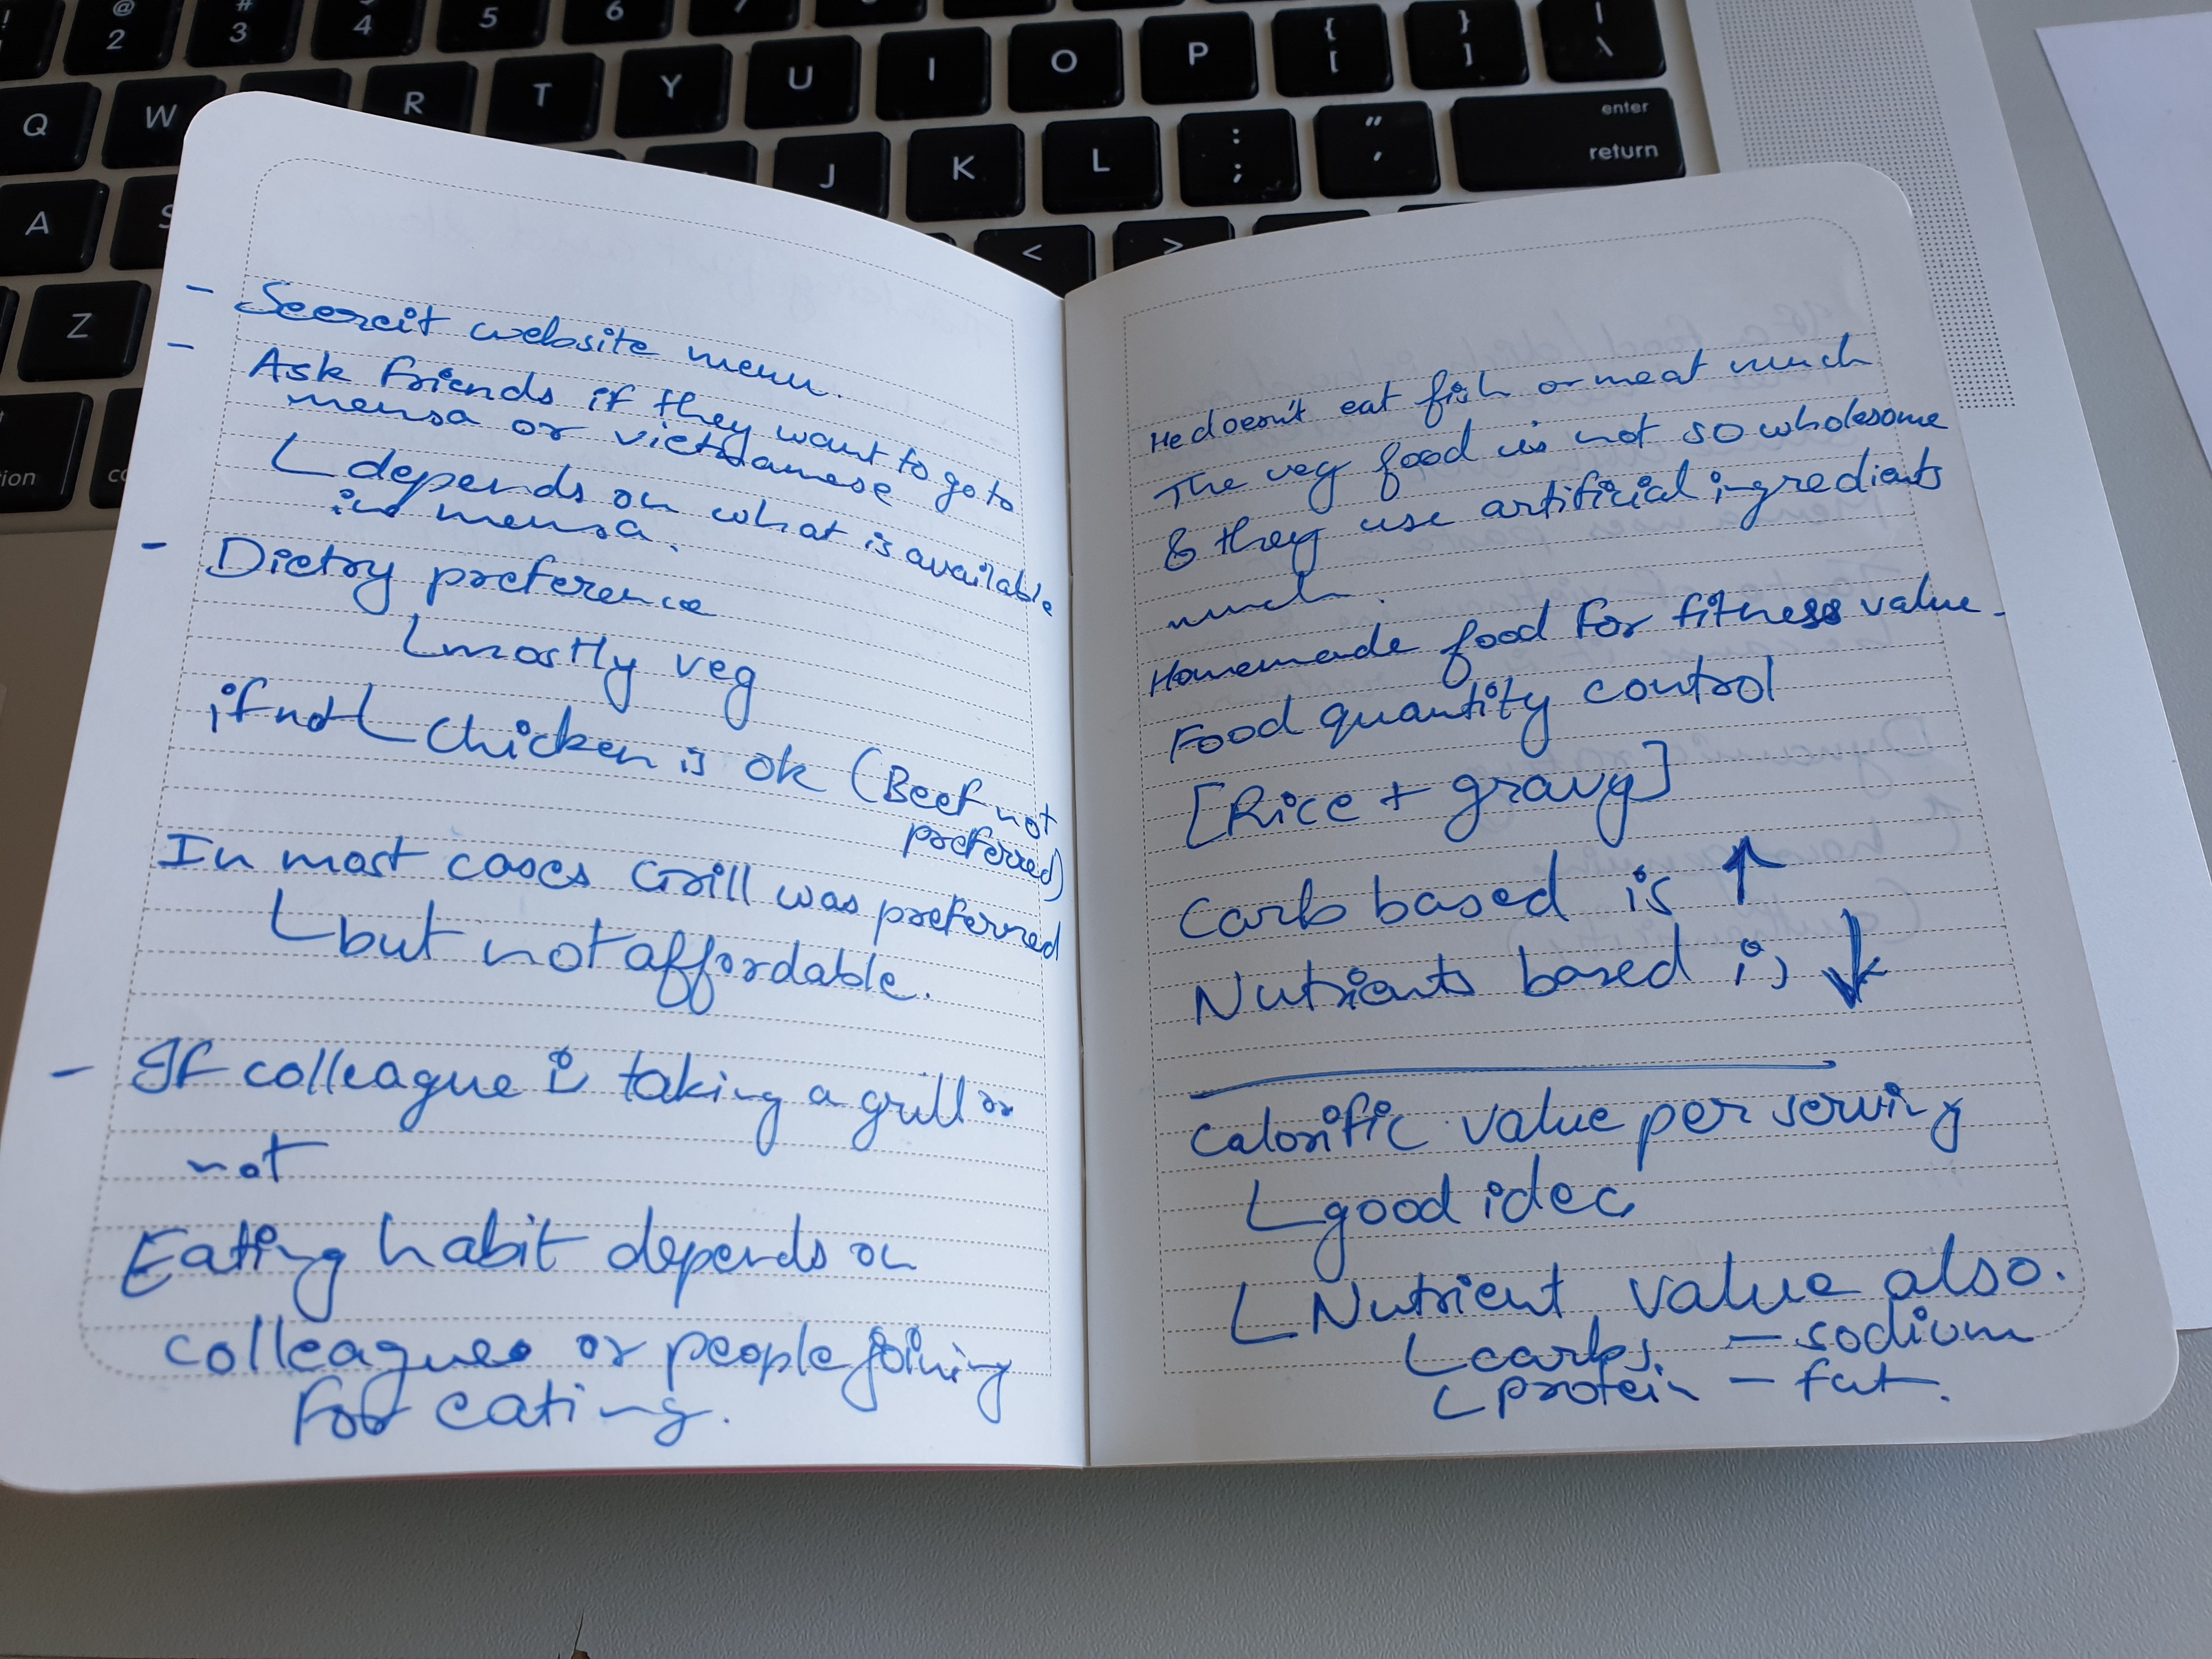 ! @ 2 # 3 4 5 6 7
Q W R T Y U I O P { [ } ] | \
A S J K L : ; " ' enter return
Z < >
- Seezeit website menu.
- Ask friends if they want to go to
mensa or vietnamese
depends on what is available
in mensa.
- Dietry preference
mostly veg
if not chicken is ok (Beef not
preferred)
In most cases Grill was preferred
but not affordable.
- If colleague is taking a grill or
not
Eating habit depends on
colleagues or people joining
for eating.
He doesn't eat fish or meat much
The veg food is not so wholesome
& they use artificial ingredients
much.
Homemade food for fitness value.
Food quantity control
[Rice + gravy]
Carb based is ↑
Nutrients based is ↓
calorific value per serving
good idea
Nutrient value also.
carbs. - sodium
protein - fat.